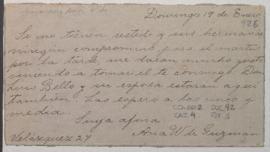 Domingo 19 de Enero
Si no tienen ustedes y sus hermanas
ningún compromiso para el martes
por la tarde, me darán mucho gusto
viniendo a tomar el te conmigo. Don
Luis Bello y su esposa estarán aquí
también. Las espero a las cinco y
media.
Suya afma
Ana W. de Guzmán
Velázquez 27